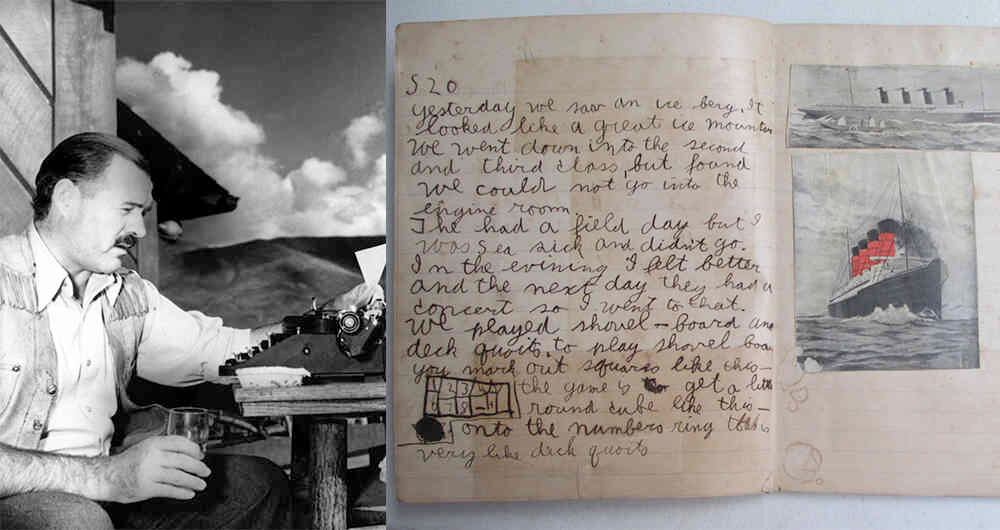 S 20
yesterday we saw an ice berg. It
looked like a great ice mounten
We went down into the second
and third class, but found
we could not go into the
engine room
The had a field day but I
was sea sick and didn't go.
In the evining I felt better
and the next day they had a
concert so I went to that.
We played shovel – board and
deck quoits. to play shovel boar
you mark out squares like this –
1 2 3
the game is to get a little
8
round cube like this –
onto the numbers ring this is
very like deck quoits